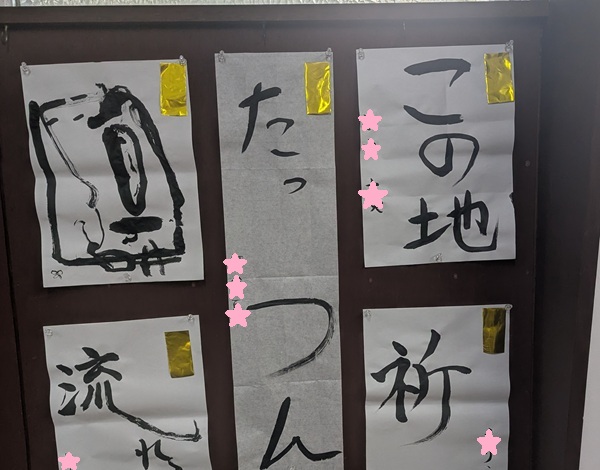 この地
祈
たっ
つん
流れ